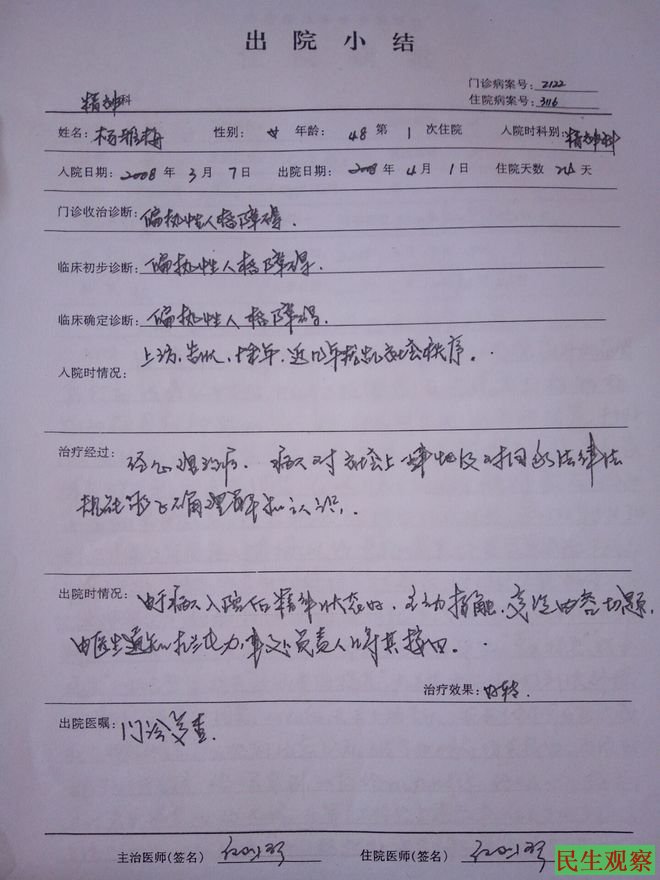 出院小结
门诊病案号：2122
精神科
住院病案号：3116
姓名：杨雅梅 性别：女 年龄：48 第 1 次住院 入院时科别：精神科
入院日期：2008 年 3 月 7 日 出院日期：2008 年 4 月 1 日 住院天数 24 天
门诊收治诊断：偏执性人格障碍．
临床初步诊断：偏执性人格障碍．
临床确定诊断：偏执性人格障碍．
上访、告状、十余年，近几年扰乱社会秩序。
入院时情况：
治疗经过：经心理治疗．病人对社会上事物及对国家法律法
规能够正确理解和认识．
出院时情况：由于病人入院后精神状态好，主动接触，交谈内容切题，
由医生通知 负责人将其接回。
治疗效果：好转．
出院医嘱：门诊复查．
主治医师(签名)
住院医师(签名)
民生观察